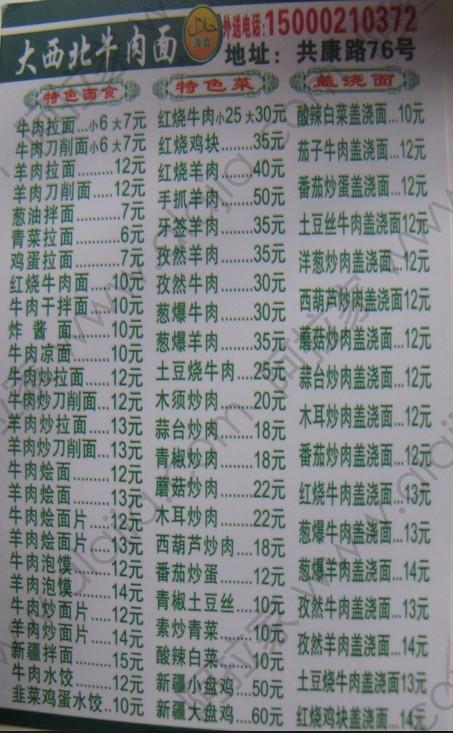 大西北牛肉面
清真
外送电话:15000210372
地址：共康路76号
特色面食
牛肉拉面...小6 大7元
牛肉刀削面小6 大7元
羊肉拉面........12元
羊肉刀削面...12元
葱油拌面........7元
青菜拉面........6元
鸡蛋拉面........7元
红烧牛肉面...10元
牛肉干拌面...10元
炸酱面........10元
牛肉凉面......10元
牛肉炒拉面......12元
牛肉炒刀削面...12元
羊肉炒拉面......13元
羊肉炒刀削面...13元
牛肉烩面........12元
羊肉烩面........13元
牛肉烩面片....12元
羊肉烩面片....13元
牛肉泡馍........12元
羊肉泡馍........14元
牛肉炒面片....12元
羊肉炒面片....14元
新疆拌面........15元
牛肉水饺........12元
韭菜鸡蛋水饺...10元
特色菜
红烧牛肉小25 大30元
红烧鸡块......35元
红烧羊肉......40元
手抓羊肉......50元
牙签羊肉......35元
孜然羊肉......35元
孜然牛肉......30元
葱爆牛肉......30元
葱爆羊肉......35元
土豆烧牛肉...25元
木须炒肉......20元
蒜台炒肉......18元
青椒炒肉......18元
蘑菇炒肉......22元
木耳炒肉......22元
西葫芦炒肉...18元
番茄炒蛋......12元
青椒土豆丝...10元
素炒青菜......10元
酸辣白菜......10元
新疆小盘鸡...50元
新疆大盘鸡...60元
盖浇面
酸辣白菜盖浇面...10元
茄子牛肉盖浇面...12元
番茄炒蛋盖浇面...12元
土豆丝牛肉盖浇面12元
洋葱炒肉盖浇面...12元
西葫芦炒肉盖浇面12元
蘑菇炒肉盖浇面...12元
蒜台炒肉盖浇面...12元
木耳炒肉盖浇面...12元
番茄炒肉盖浇面...12元
红烧牛肉盖浇面...13元
葱爆牛肉盖浇面...13元
葱爆羊肉盖浇面...14元
孜然牛肉盖浇面...13元
孜然羊肉盖浇面...14元
土豆烧牛肉盖浇面13元
红烧鸡块盖浇面...14元